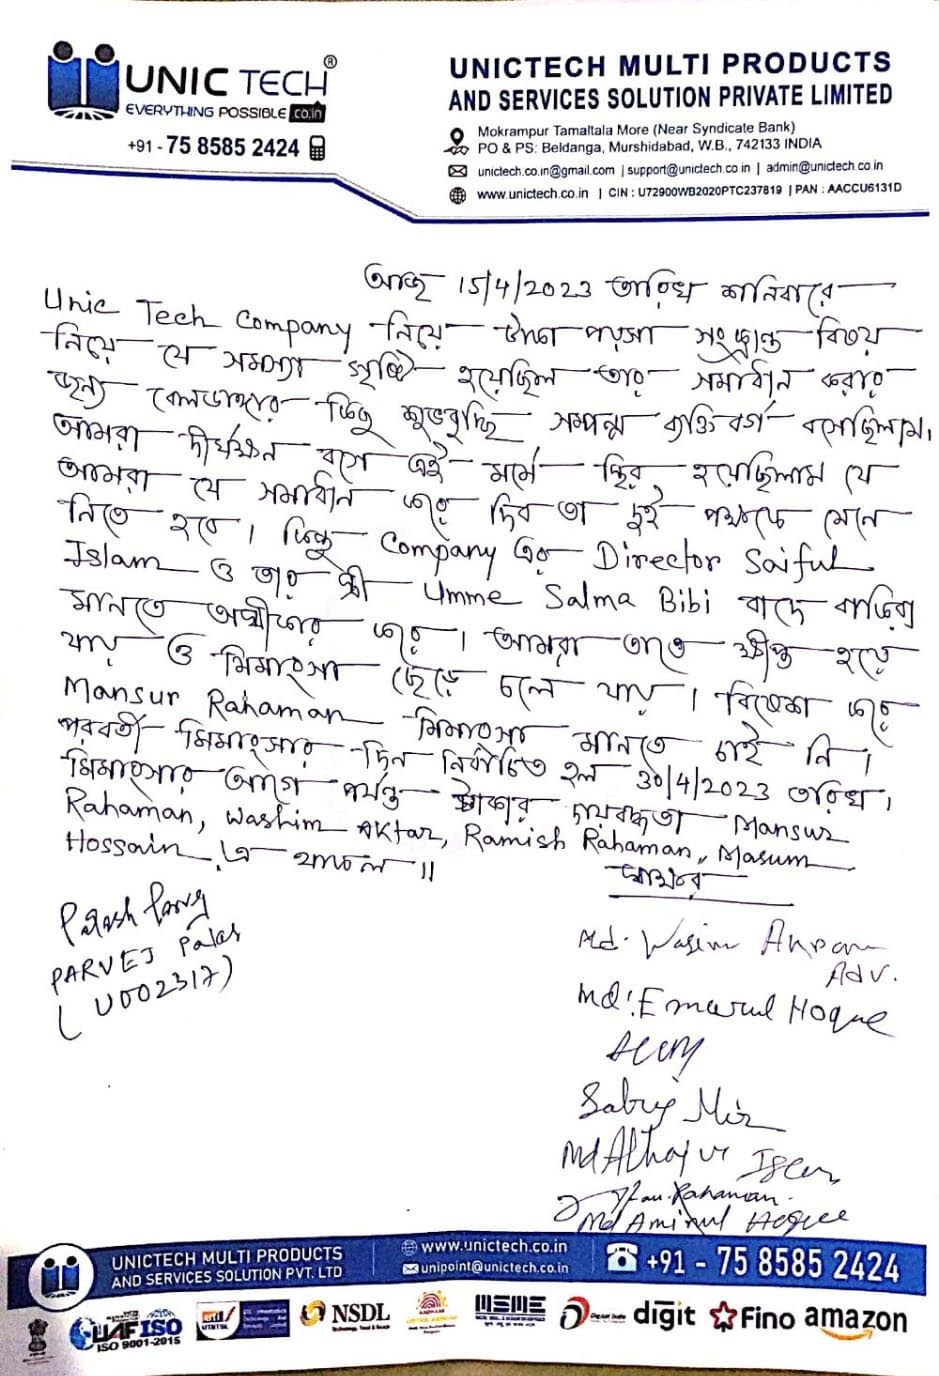 UNIC TECH®
EVERYTHING POSSIBLE co.in
+91 - 75 8585 2424
UNICTECH MULTI PRODUCTS
AND SERVICES SOLUTION PRIVATE LIMITED
Mokrampur Tamaltala More (Near Syndicate Bank)
PO & PS: Beldanga, Murshidabad, W.B., 742133 INDIA
unictech.co.in@gmail.com | support@unictech.co.in | admin@unictech.co.in
www.unictech.co.in | CIN : U72900WB2020PTC237819 | PAN : AACCU6131D
আজ 15/4/2023 তারিখ শনিবারে
Unic Tech Company নিয়ে টাকা পয়সা সংক্রান্ত বিষয়
নিয়ে যে সমস্যা সৃষ্টি হয়েছিল তার সমাধান করার
জন্য বেলডাঙ্গার কিছু শুভবুদ্ধি সম্পন্ন ব্যক্তি বর্গ বসেছিলাম,
আমরা দীর্ঘক্ষন বসে এই মর্মে স্থির হয়েছিলাম যে
আমরা যে সমাধান করে দিব তা দুই পক্ষকে মেনে
নিতে হবে। কিন্তু Company এর Director Saiful
Islam ও তার স্ত্রী Umme Salma Bibi বাদে বাকিরা
মানতে অস্বীকার করে। আমরা তাতে ক্ষীপ্ত হয়ে
যায় ও মিমাংসা ছেড়ে চলে যায়। বিশেষ করে
Mansur Rahaman মিমাংসা মানতে চাই নি।
পরবর্তী মিমাংসার দিন নির্বাচিত হল 30/4/2023 তারিখ।
মিমাংসার আগে পর্যন্ত টাকার দায়বদ্ধতা Mansur
Rahaman, Washim Aktar, Ramish Rahaman, Masum
Hossain এ থাকল॥
স্বাক্ষর
PARVEJ Palas
(U002317)
Md. Wasim Akram
Adv.
Md. Emarul Hoque
Sabuj Mir
Md Althajur Islam
Rahaman
Md Aminul Hoque
UNICTECH MULTI PRODUCTS
AND SERVICES SOLUTION PVT. LTD
www.unictech.co.in
unipoint@unictech.co.in
+91 - 75 8585 2424
UAF ISO
ISO 9001-2015
NSDL
MSME
digit
Fino
amazon